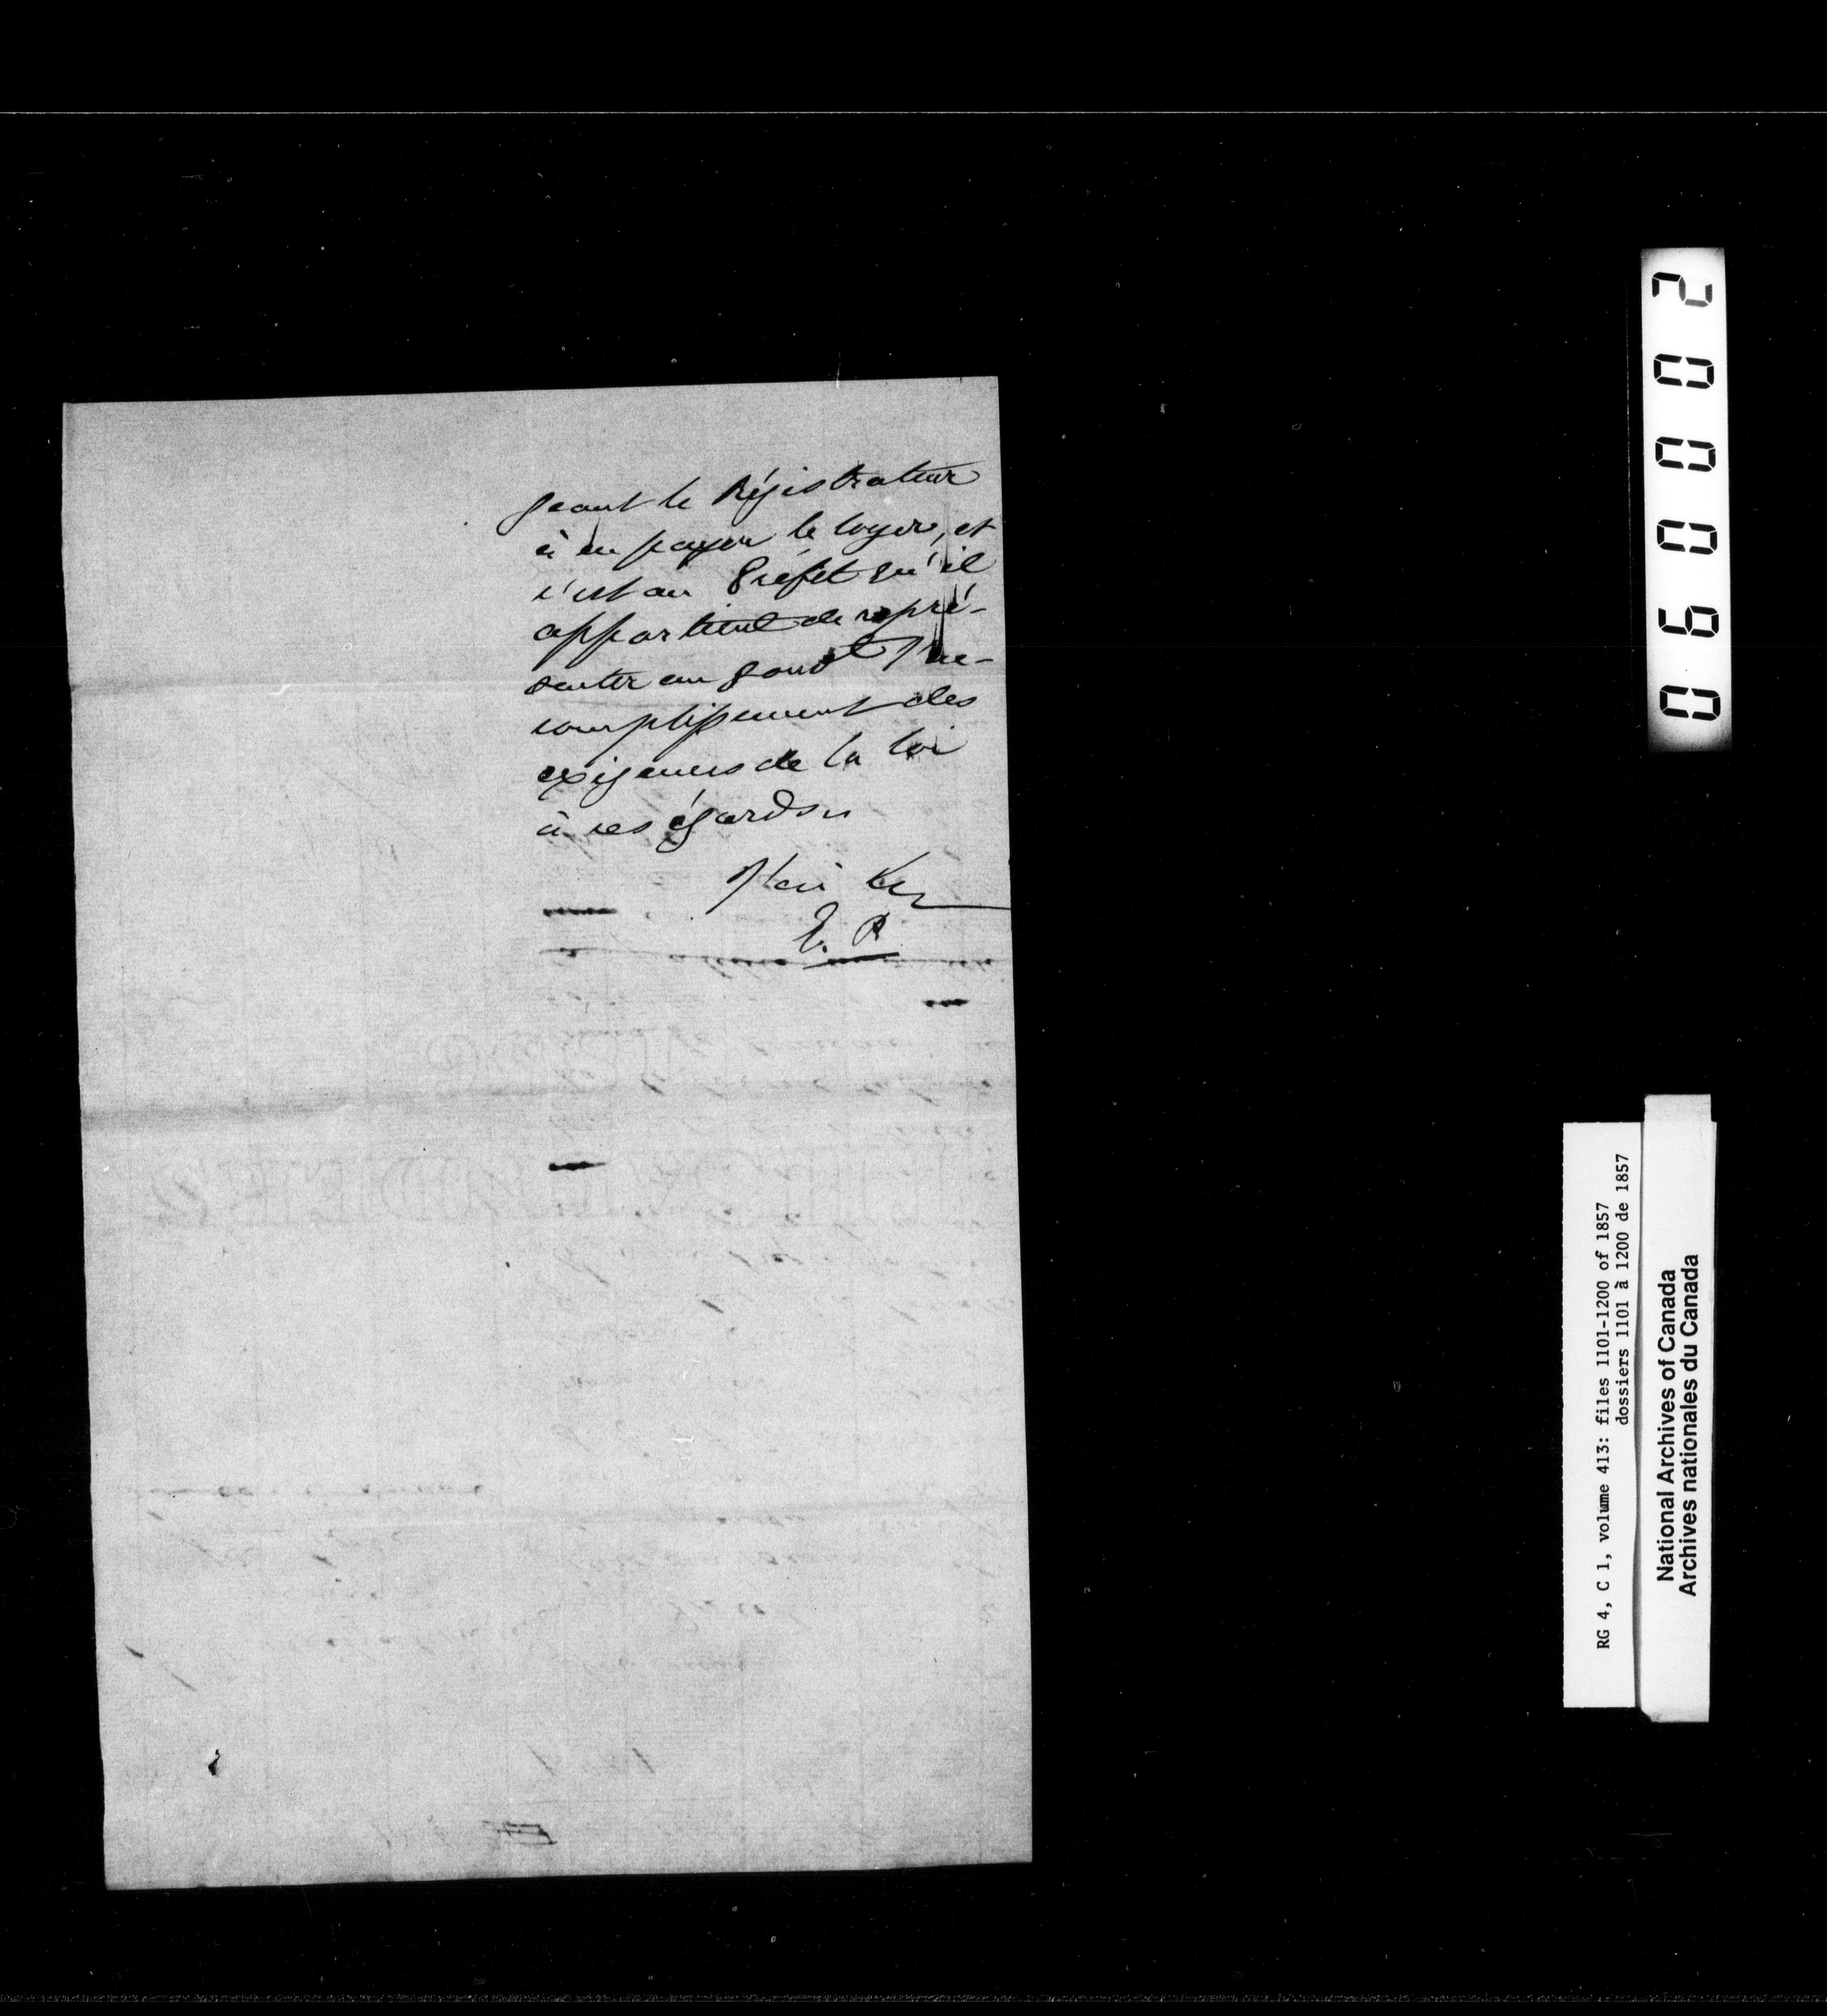 geant le Régistrateur
à en payer le loyer, et
c'est au Préfet qu'il
appartient de repré-
senter au gouvt l'ac-
complissement des
exigences de la loi
à ces égards
E. P.
06002
RG 4, C 1, volume 413: files 1101-1200 of 1857
dossiers 1101 à 1200 de 1857
National Archives of Canada
Archives nationales du Canada